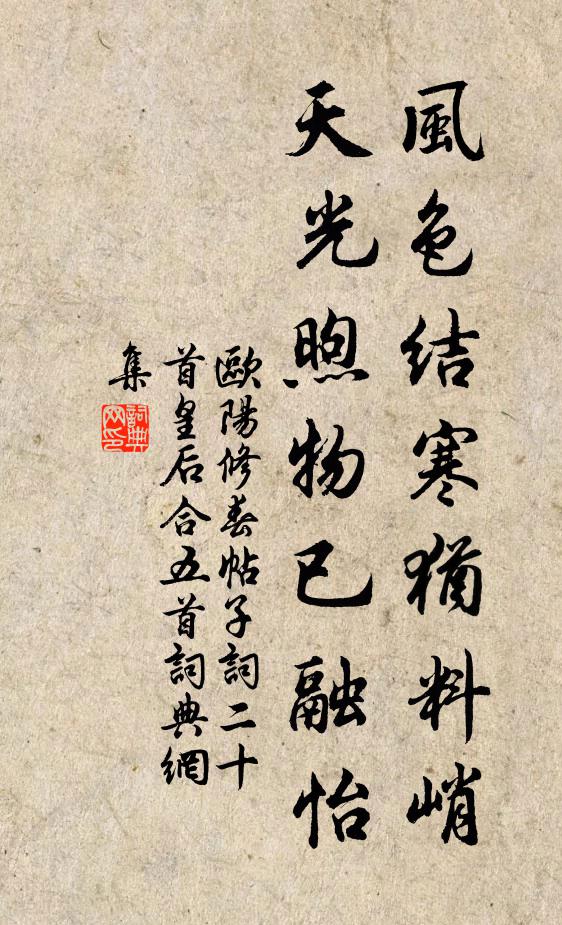 風色結寒猶料峭
天光煦物已融怡
歐陽修春帖子詞二十
首皇后合五首詞典網
集
詞典網印